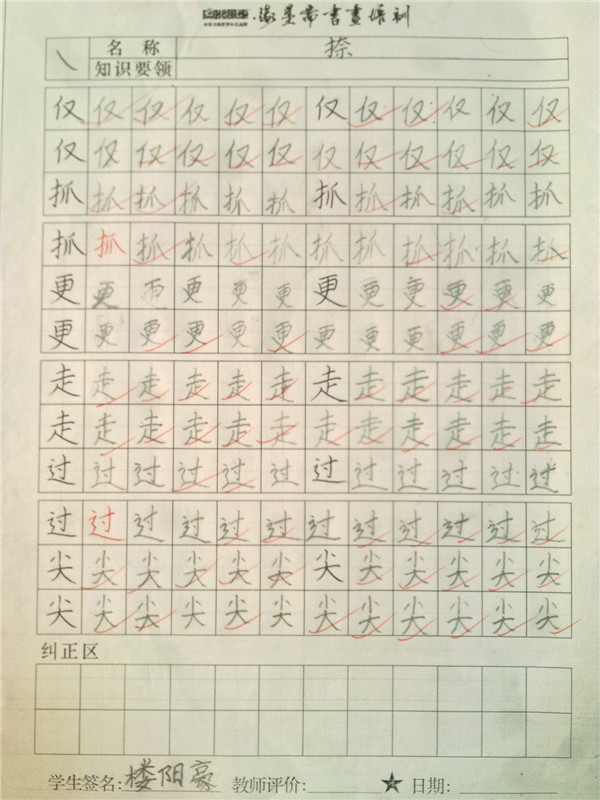 书画培训
名称 捺
知识要领
仅仅仅仅仅仅仅仅仅仅仅仅
仅仅仅仅仅仅仅仅仅仅仅仅
抓抓抓抓抓抓抓抓抓抓抓抓
抓抓抓抓抓抓抓抓抓抓抓抓
更更更更更更更更更更更更
更更更更更更更更更更更更
走走走走走走走走走走走走
走走走走走走走走走走走走
过过过过过过过过过过过过
过过过过过过过过过过过过
尖尖尖尖尖尖尖尖尖尖尖尖
尖尖尖尖尖尖尖尖尖尖尖尖
纠正区
学生签名:楼阳豪 教师评价: ★ 日期: